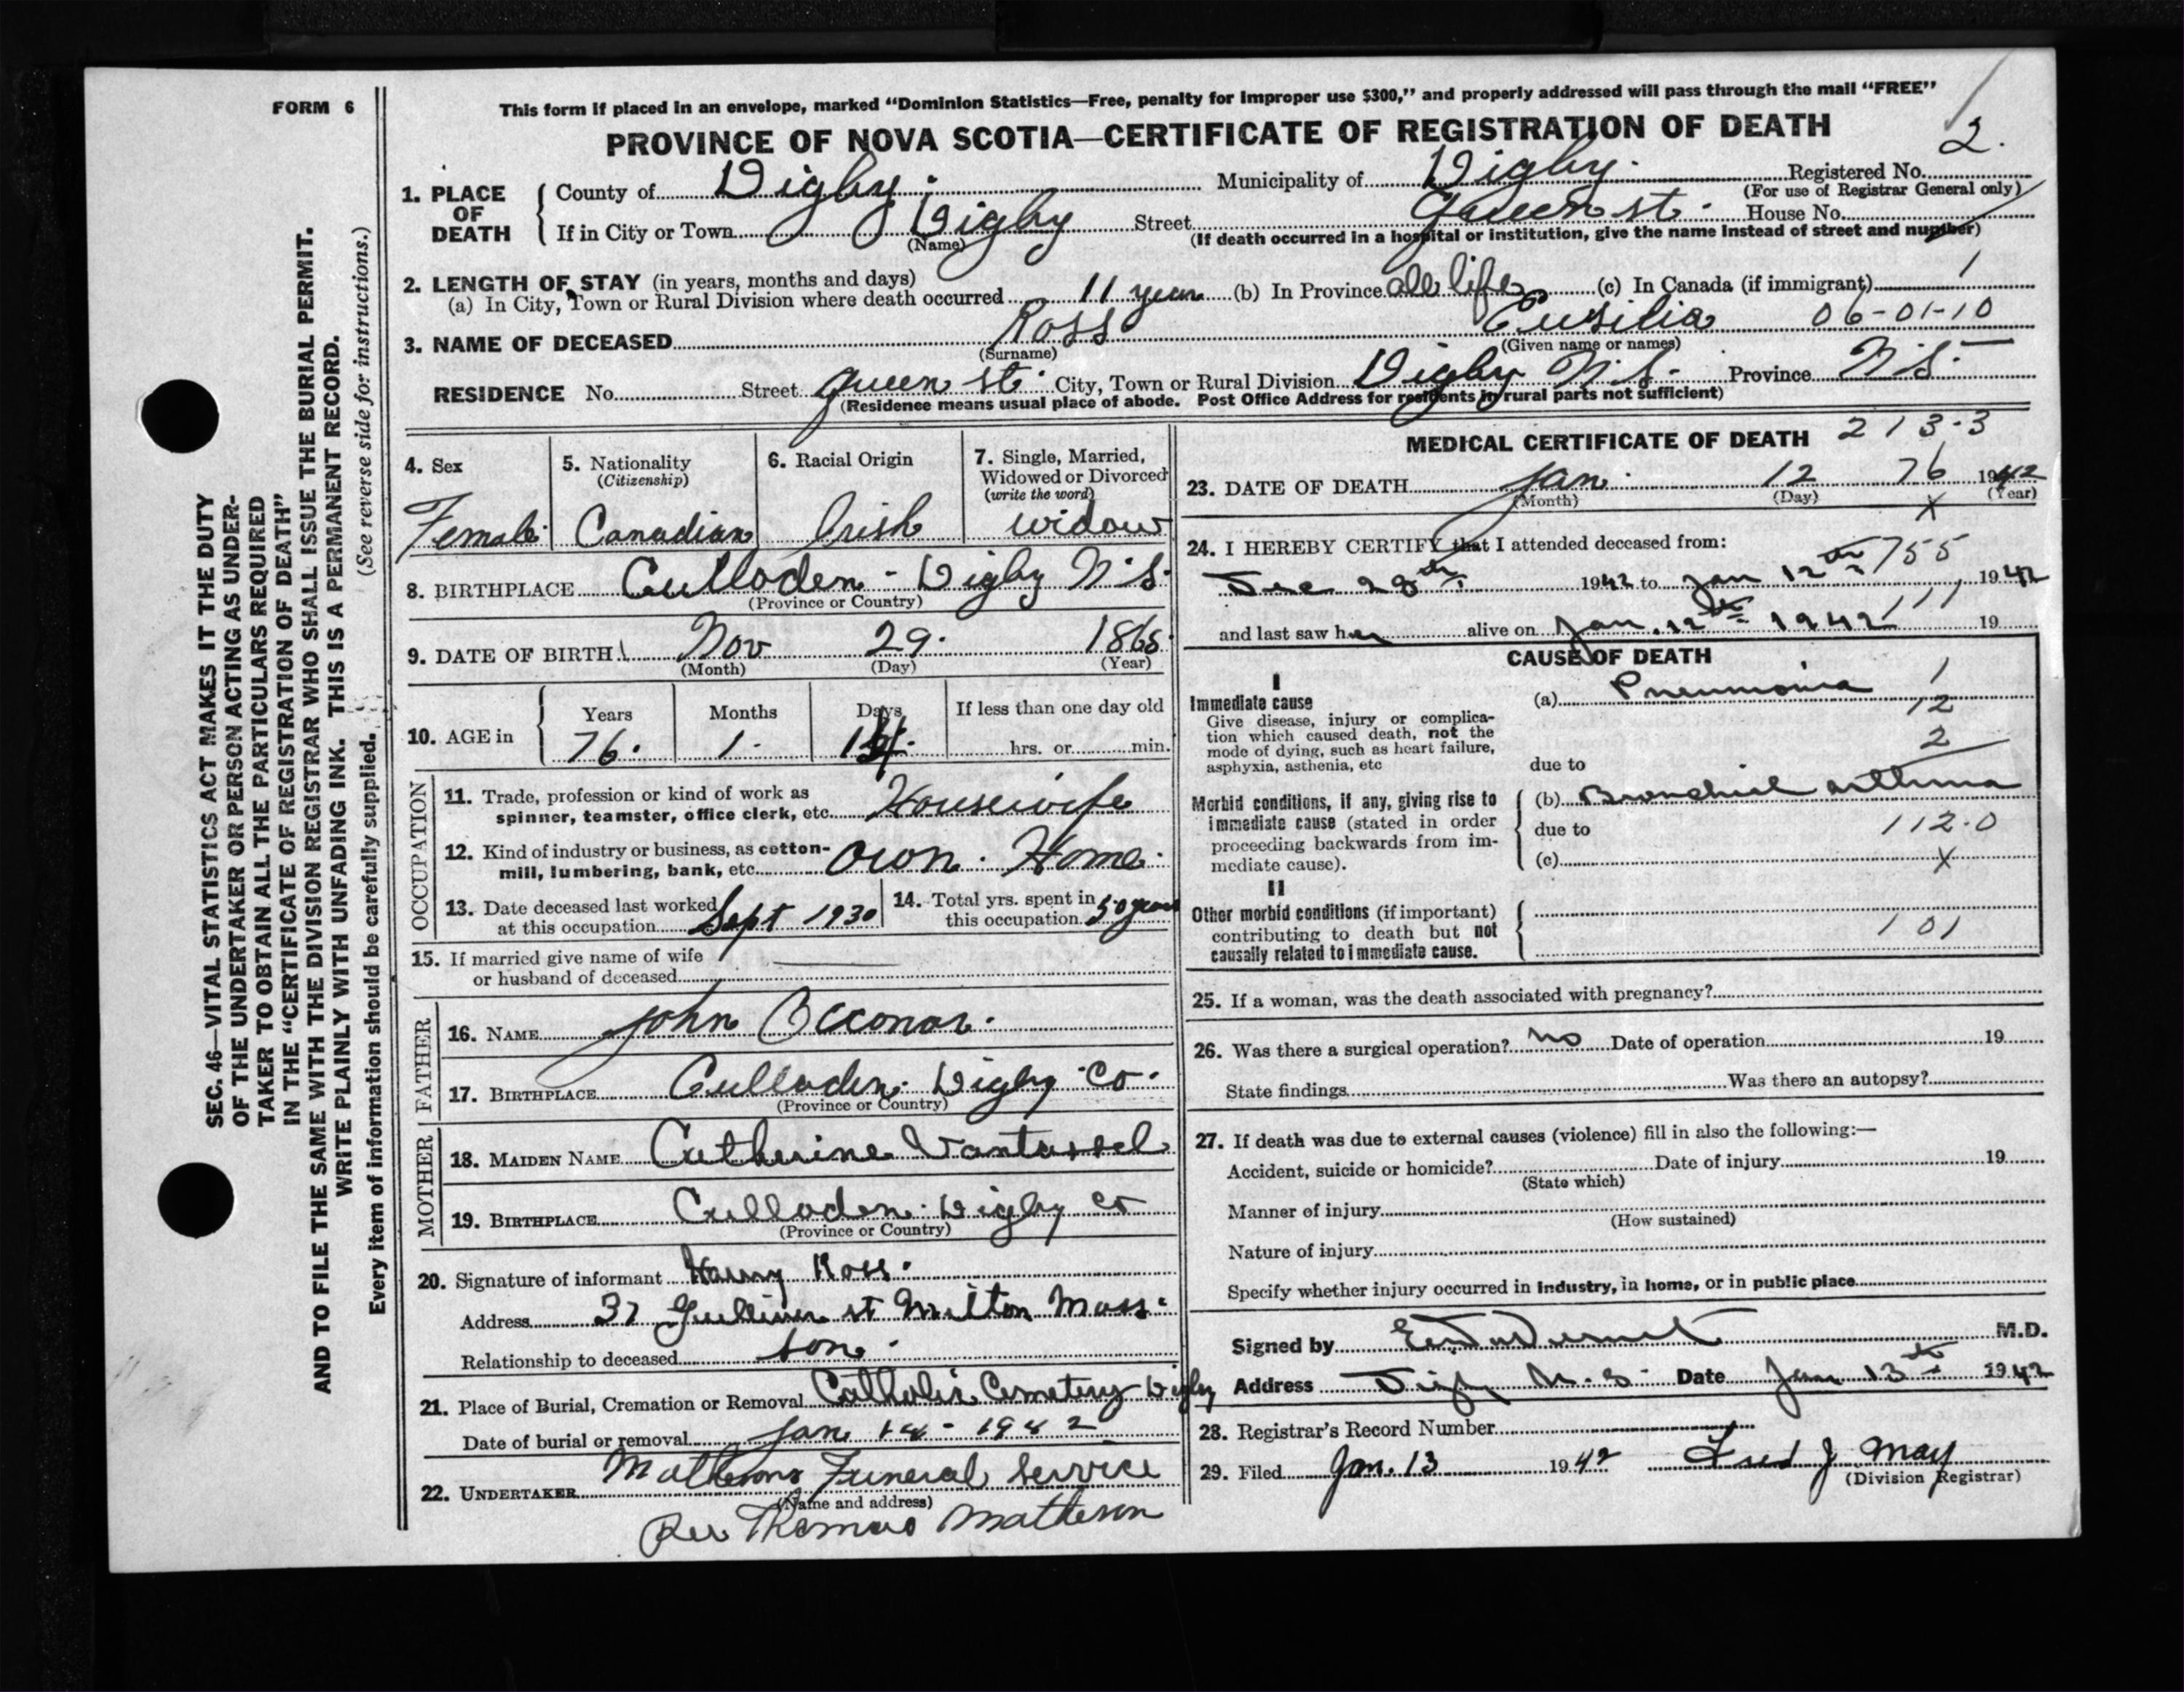 FORM 6
This form if placed in an envelope, marked "Dominion Statistics—Free, penalty for improper use $300," and properly addressed will pass through the mail "FREE"
PROVINCE OF NOVA SCOTIA—CERTIFICATE OF REGISTRATION OF DEATH
2.
1. PLACE OF DEATH
County of Digby. Municipality of Digby. Registered No.
(For use of Registrar General only)
If in City or Town Digby Street Queen st. House No.
(Name) (If death occurred in a hospital or institution, give the name instead of street and number)
2. LENGTH OF STAY (in years, months and days)
(a) In City, Town or Rural Division where death occurred 11 year (b) In Province all life (c) In Canada (if immigrant) 1
3. NAME OF DECEASED Ross Eusilia 06-01-10
(Surname) (Given name or names)
RESIDENCE No. Street Queen st. City, Town or Rural Division Digby N.S. Province N.S.
(Residence means usual place of abode. Post Office Address for residents in rural parts not sufficient)
4. Sex
Female
5. Nationality
(Citizenship)
Canadian
6. Racial Origin
Irish
7. Single, Married,
Widowed or Divorced
(write the word)
widow
8. BIRTHPLACE Culloden - Digby N.S.
(Province or Country)
9. DATE OF BIRTH Nov 29. 1865
(Month) (Day) (Year)
10. AGE in
Years Months Days If less than one day old
76. 1. hrs. or min.
OCCUPATION
11. Trade, profession or kind of work as
spinner, teamster, office clerk, etc. Housewife
12. Kind of industry or business, as cotton-
mill, lumbering, bank, etc. own. Home.
13. Date deceased last worked
at this occupation Sept 1930
14. Total yrs. spent in
this occupation. 50 years
15. If married give name of wife
or husband of deceased
FATHER
16. NAME John Occonar.
17. BIRTHPLACE Culloden. Digby Co.
(Province or Country)
MOTHER
18. MAIDEN NAME Catherine Vantassel
19. BIRTHPLACE Culloden. Digby co
(Province or Country)
20. Signature of informant Harry Ross.
Address 37 st Milton Mass.
Relationship to deceased son.
21. Place of Burial, Cremation or Removal Catholic Cemetery Digby
Date of burial or removal Jan 14 - 1942
22. UNDERTAKER Mathesons Funeral Service
(Name and address)
Per Thomas Matheson
MEDICAL CERTIFICATE OF DEATH 213-3
23. DATE OF DEATH Jan. 12 76 1942
(Month) (Day) (Year)
X
24. I HEREBY CERTIFY that I attended deceased from:
755
Dec 28th 1942 to Jan 12th, 1942
and last saw her alive on Jan. 12th 1942 111 19
CAUSE OF DEATH
I
Immediate cause
Give disease, injury or complica-
tion which caused death, not the
mode of dying, such as heart failure,
asphyxia, asthenia, etc
(a) Pneumonia 1
12
2
due to
Morbid conditions, if any, giving rise to
immediate cause (stated in order
proceeding backwards from im-
mediate cause).
(b) Bronchial asthma
due to 112.0
(c) X
II
Other morbid conditions (if important)
contributing to death but not
causally related to immediate cause.
101
25. If a woman, was the death associated with pregnancy?
26. Was there a surgical operation? no Date of operation 19
State findings Was there an autopsy?
27. If death was due to external causes (violence) fill in also the following:—
Accident, suicide or homicide? Date of injury 19
(State which)
Manner of injury
(How sustained)
Nature of injury
Specify whether injury occurred in industry, in home, or in public place
Signed by M.D.
Address Digby N.S. Date Jan 13th 1942
28. Registrar's Record Number
29. Filed Jan. 13 1942 Fred J. May
(Division Registrar)
SEC. 46—VITAL STATISTICS ACT MAKES IT THE DUTY
OF THE UNDERTAKER OR PERSON ACTING AS UNDER-
TAKER TO OBTAIN ALL THE PARTICULARS REQUIRED
IN THE "CERTIFICATE OF REGISTRATION OF DEATH"
AND TO FILE THE SAME WITH THE DIVISION REGISTRAR WHO SHALL ISSUE THE BURIAL PERMIT.
WRITE PLAINLY WITH UNFADING INK. THIS IS A PERMANENT RECORD.
Every item of information should be carefully supplied. (See reverse side for instructions.)